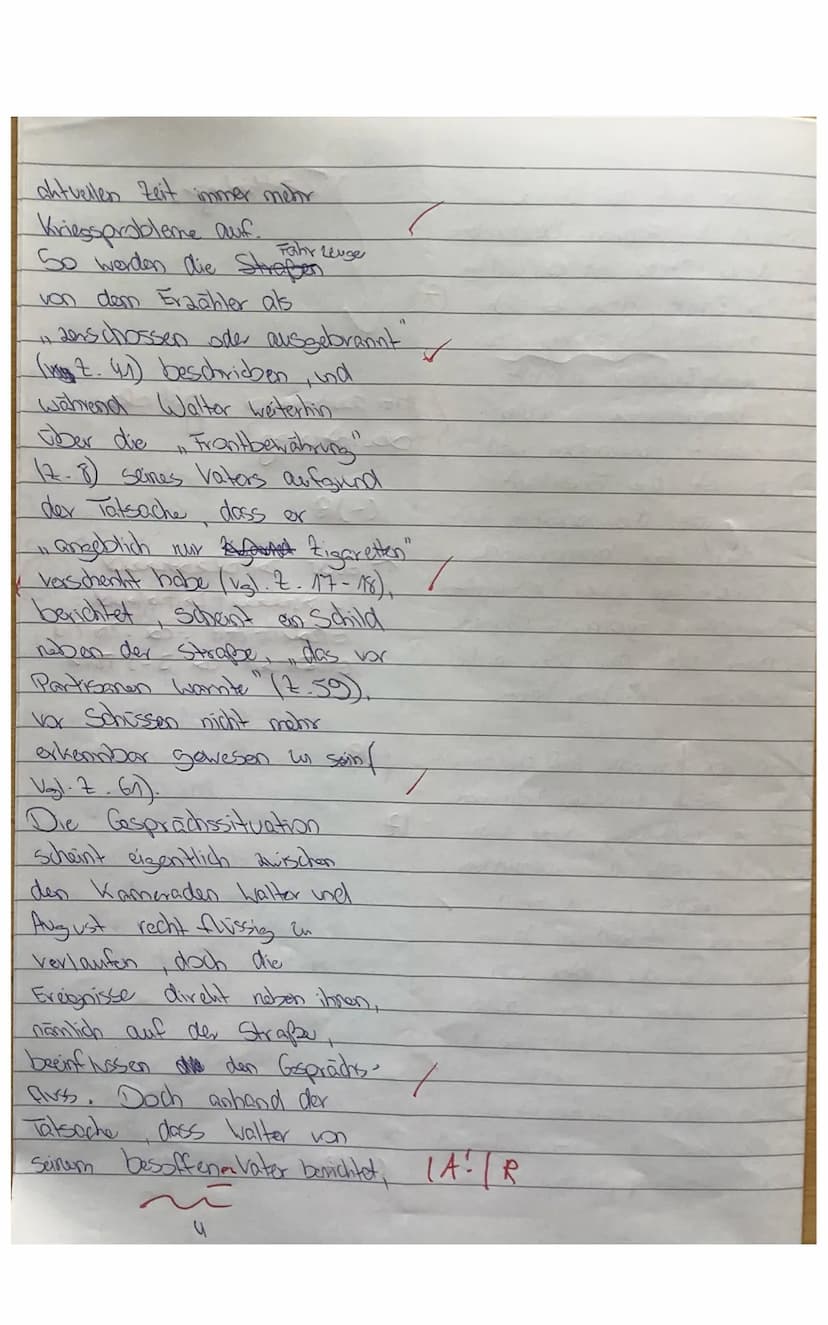 aktuellen Zeit immer mehr
Kriegsprobleme auf.
So werden die Straßen Fahrzeuge
von dem Erzähler als
„zerschossen oder ausgebrannt"
(Z. 41) beschrieben, und
während Walter weiterhin
über die „Frontbewährung"
(Z. 8) seines Vaters aufgrund
der Tatsache, dass er
„angeblich nur Zigaretten"
verschenkt habe (vgl. Z. 17-18),
berichtet, scheint ein Schild
neben der Straße, „das vor
Partisanen warnte" (Z. 59),
vor Schüssen nicht mehr
erkennbar gewesen zu sein (
Vgl. Z. 61).
Die Gesprächssituation
scheint eigentlich zwischen
den Kameraden Walter und
August recht flüssig zu
verlaufen, doch die
Ereignisse direkt neben ihnen,
nämlich auf der Straße,
beeinflussen den Gesprächs-
fluss. Doch anhand der
Tatsache, dass Walter von
seinem besoffenen Vater berichtet, | A! | R
4